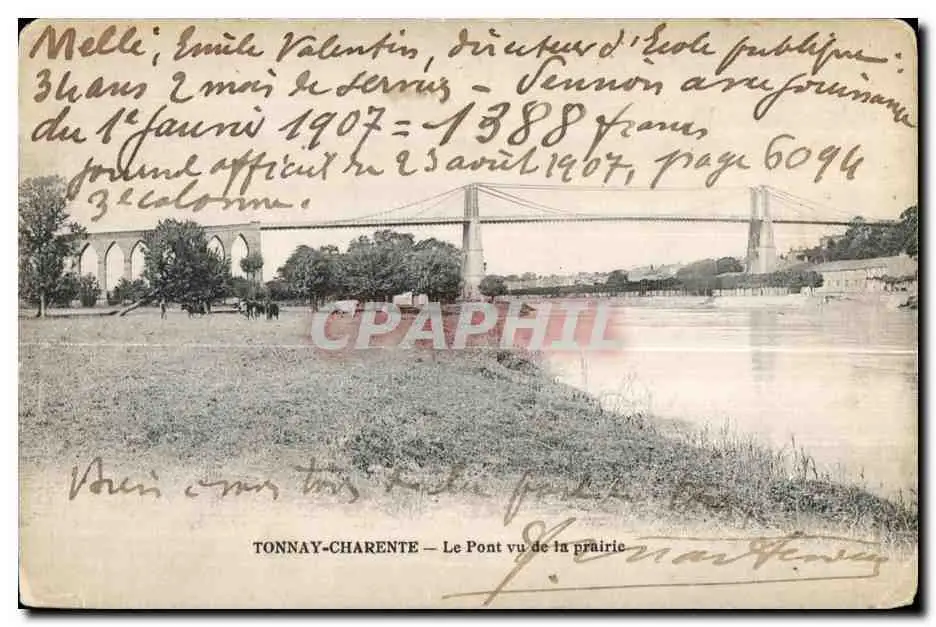 Mellé, Emile Valentin, directeur d'Ecole publique:
34 ans 2 mois de services - Pension avec jouissance
du 1er Janvier 1907 = 1388 francs
Journal officiel du 23 août 1907, page 6094
3e colonne.
CPAPHIL
mon tous
TONNAY-CHARENTE — Le Pont vu de la prairie